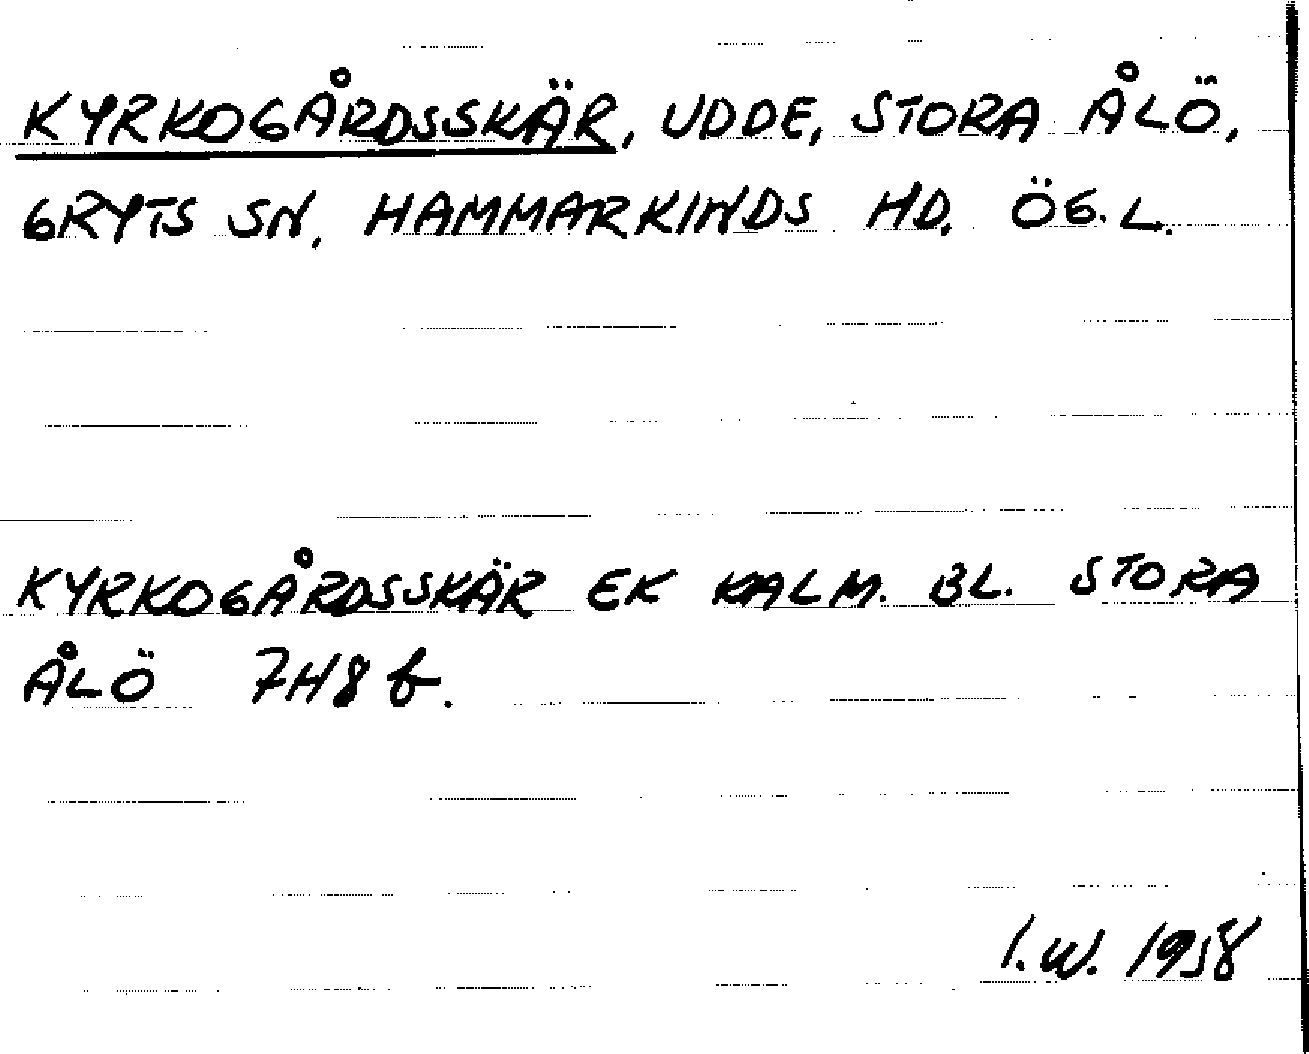 KYRKOGÅRDSSKÄR, UDDE, STORA ÅLÖ,
GRYTS SN, HAMMARKINDS HD, ÖG. L.
KYRKOGÅRDSSKÄR EK KALM. BL. STORA
ÅLÖ 7H8 b.
I. W. 1958